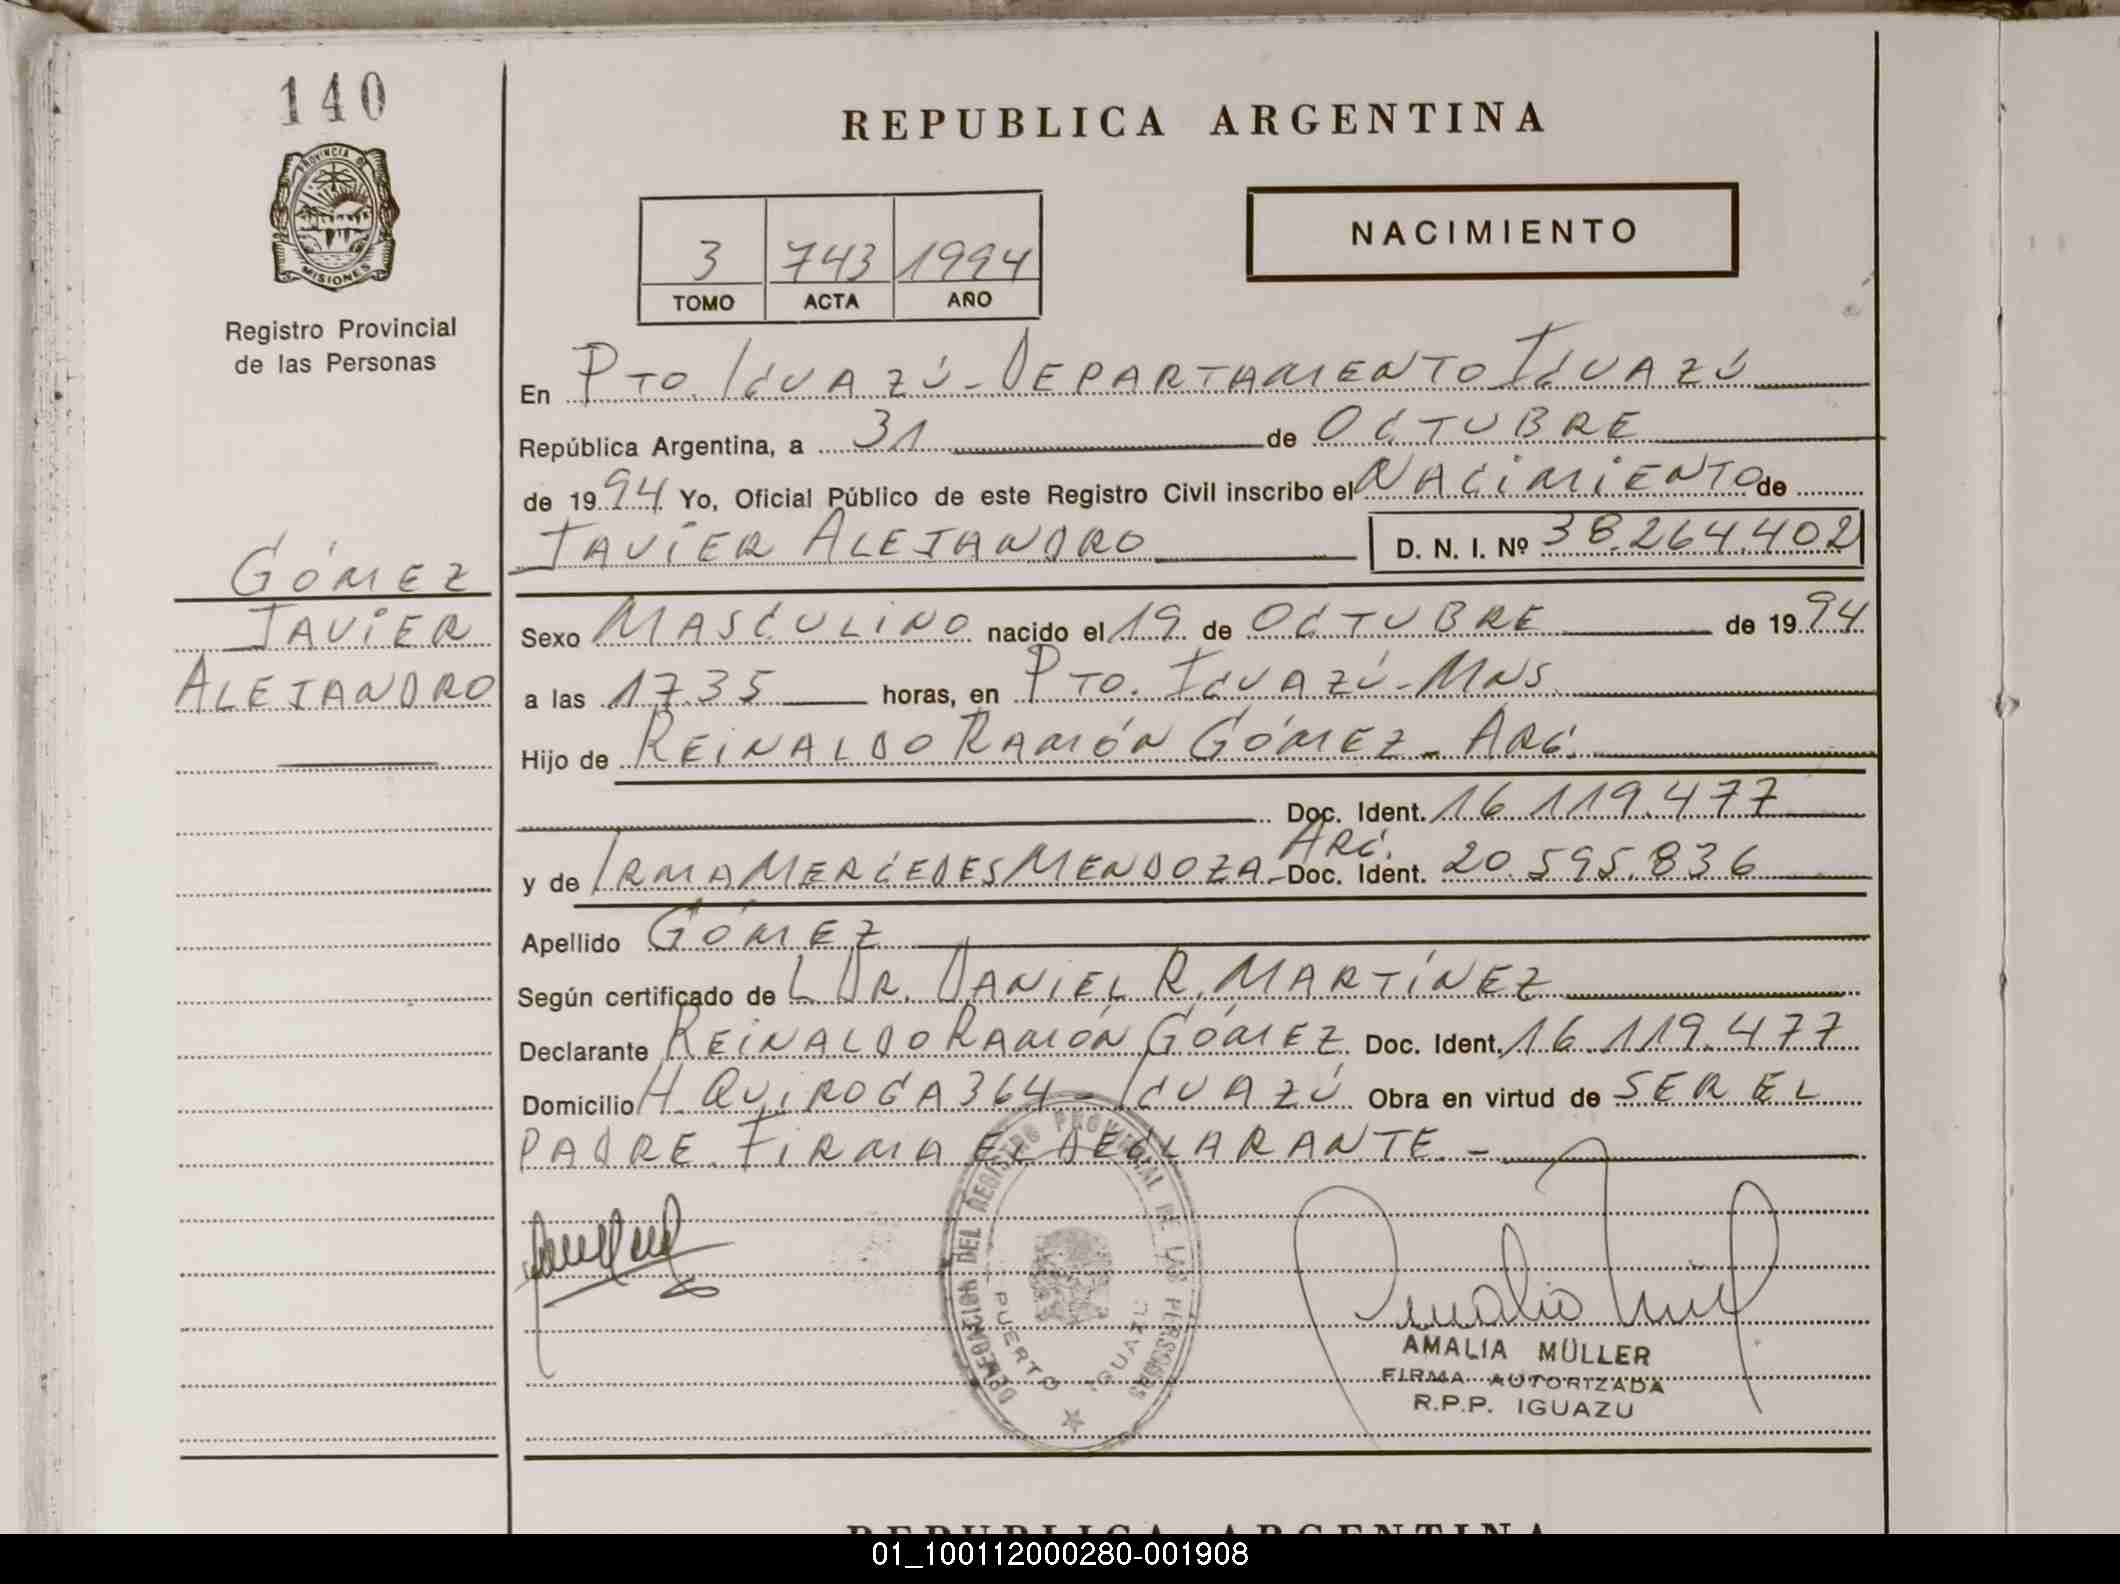 140
PROVINCIA DE
MISIONES
Registro Provincial
de las Personas
REPUBLICA ARGENTINA
3 743 1994
TOMO ACTA AÑO
NACIMIENTO
En PTO. IGUAZÚ - DEPARTAMENTO IGUAZÚ
República Argentina, a 31 de OCTUBRE
de 1994 Yo, Oficial Público de este Registro Civil inscribo el NACIMIENTO de
JAVIER ALEJANDRO D. N. I. Nº 38.264.402
GÓMEZ
JAVIER
ALEJANDRO
Sexo MASCULINO nacido el 19 de OCTUBRE de 1994
a las 17.35 horas, en PTO. IGUAZÚ - MNS.
Hijo de REINALDO RAMÓN GÓMEZ - ARG.
Doc. Ident. 16.119.477
y de IRMA MERCEDES MENDOZA - ARG. Doc. Ident. 20.595.836
Apellido GÓMEZ
Según certificado de L DR. DANIEL R. MARTÍNEZ
Declarante REINALDO RAMÓN GÓMEZ Doc. Ident. 16.119.477
Domicilio H. QUIROGA 364 - IGUAZÚ Obra en virtud de SER EL
PADRE. FIRMA EL DECLARANTE. -
DELEGACION DEL REGISTRO PROVINCIAL DE LAS PERSONAS
PUERTO IGUAZU
AMALIA MÜLLER
FIRMA AUTORIZADA
R.P.P. IGUAZU
REPUBLICA ARGENTINA
01_100112000280-001908